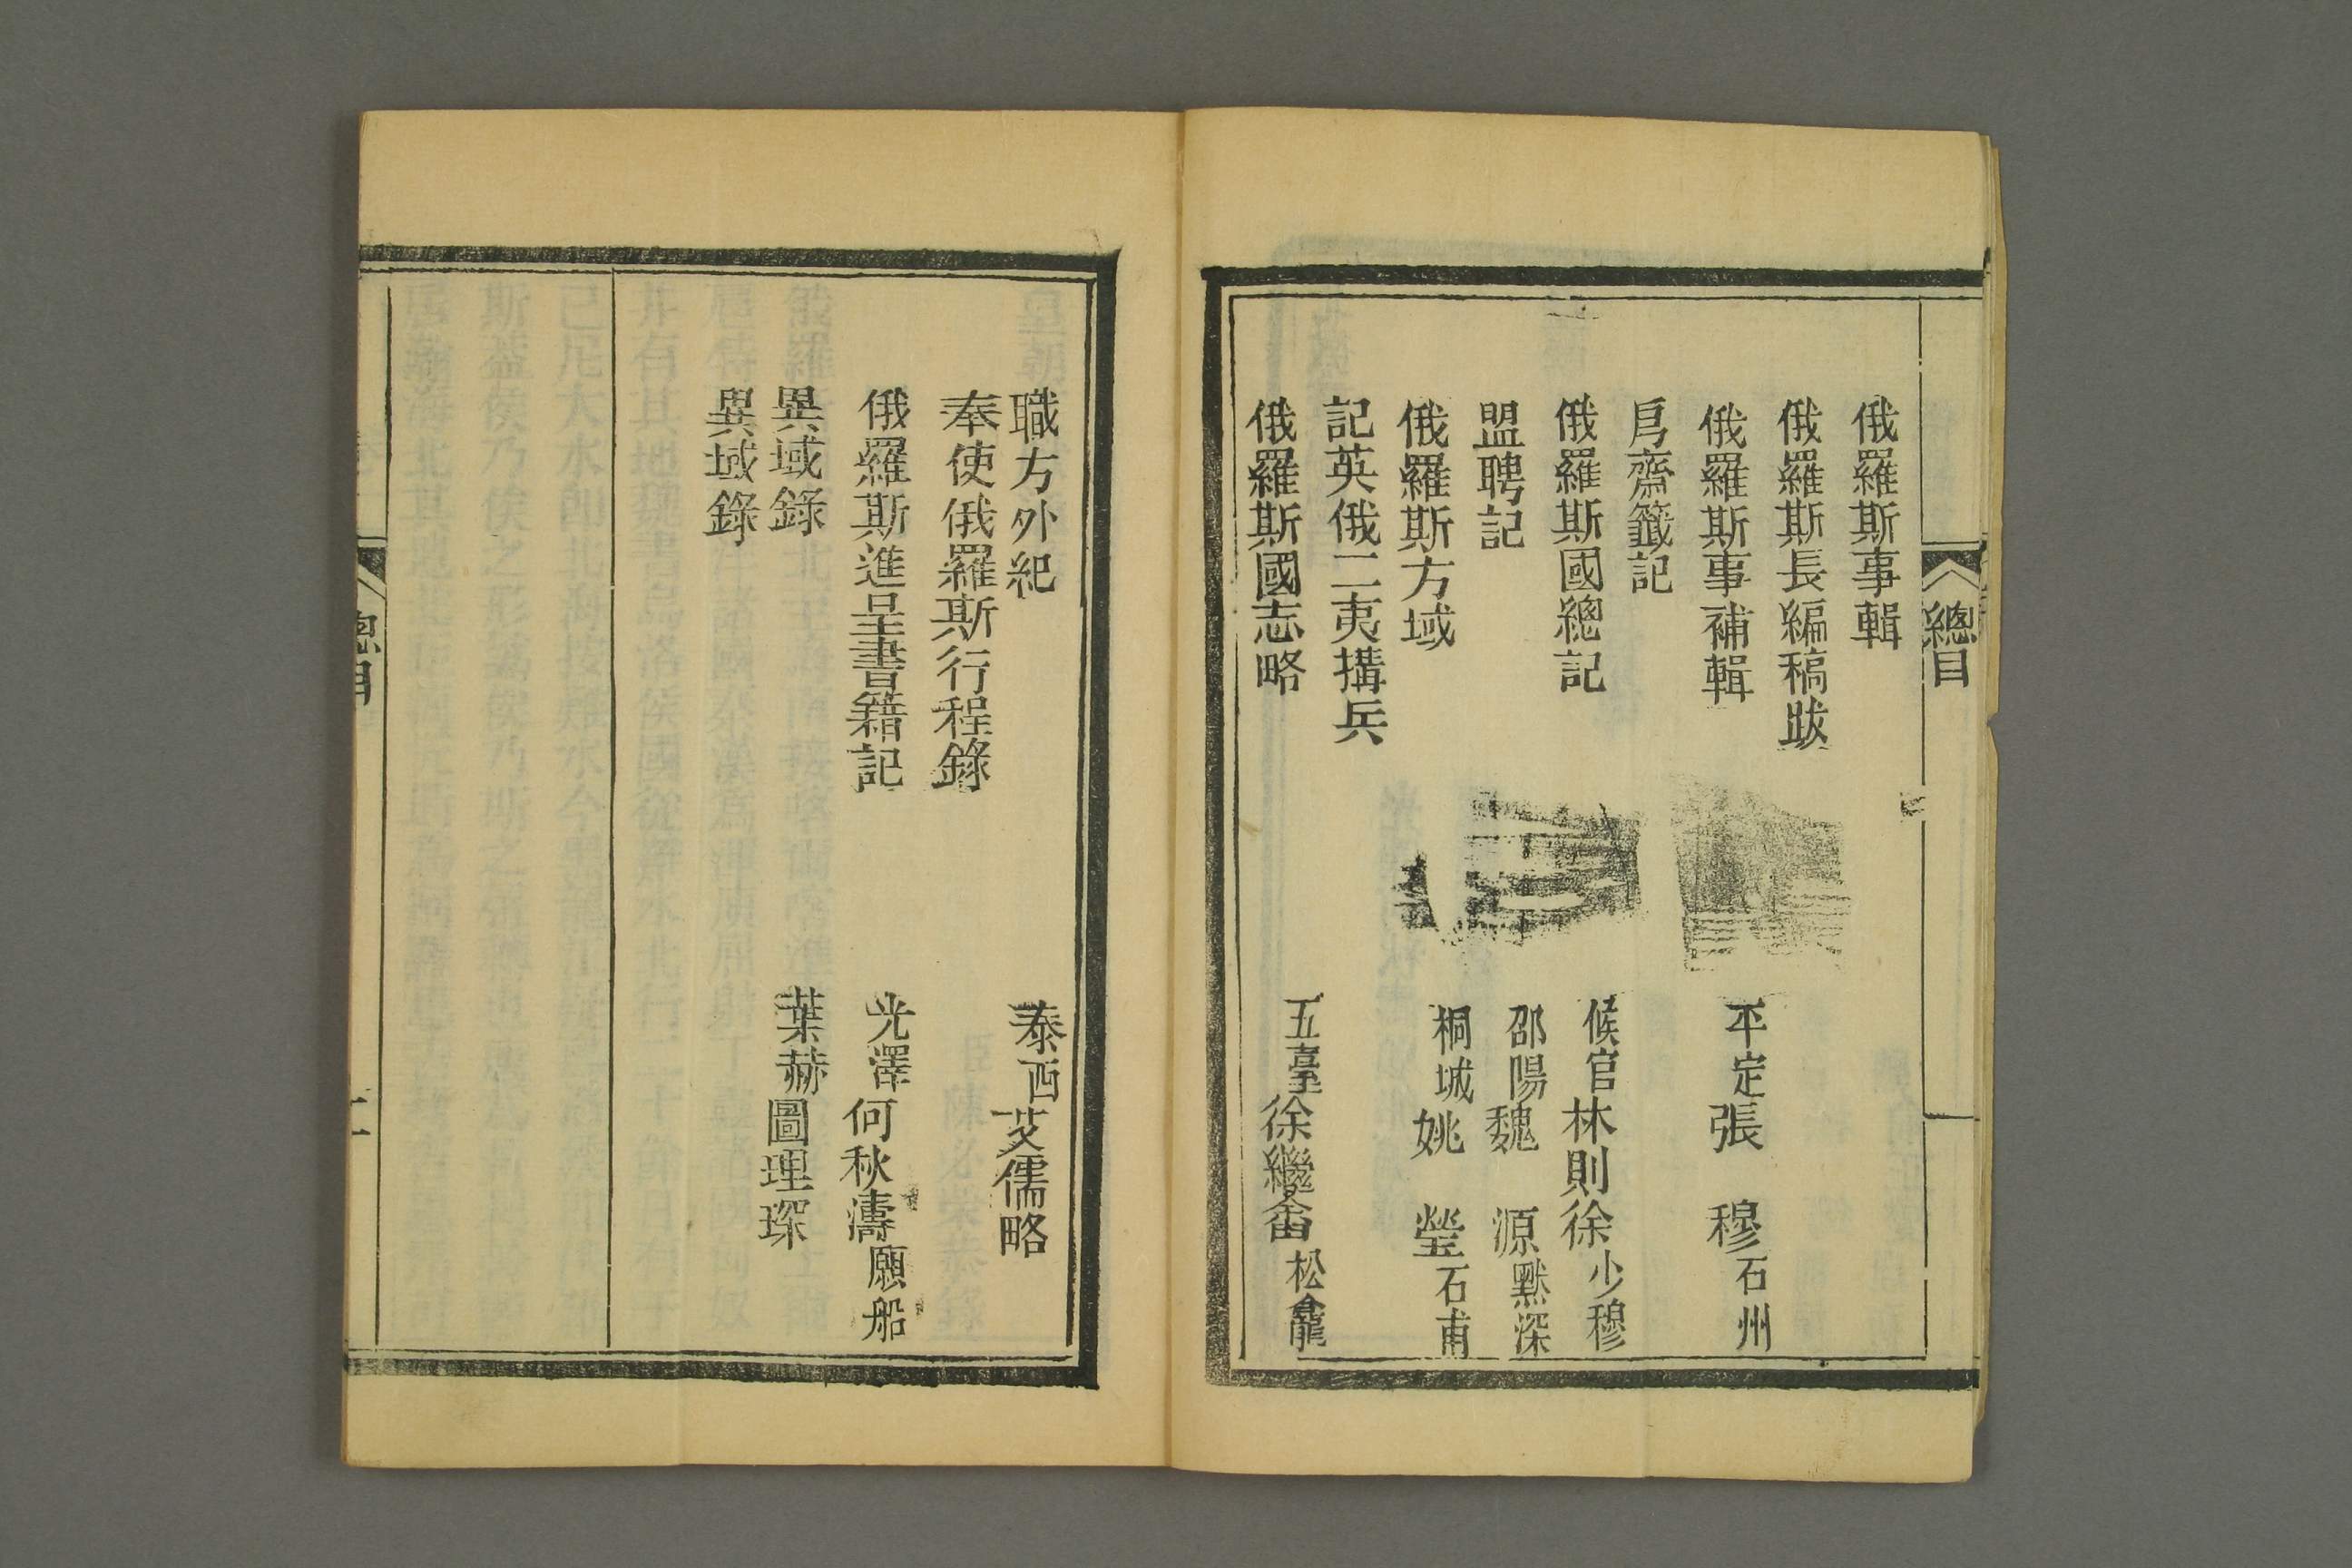 總目
俄羅斯事輯
俄羅斯長編稿跋
俄羅斯事補輯 平定張 穆石州
㠯齋籤記
俄羅斯國總記 候官林則徐少穆
盟聘記 邵陽魏 源默深
俄羅斯方域 桐城姚 瑩石甫
記英俄二夷搆兵
俄羅斯國志略 五臺徐繼畬松龕
職方外紀 泰西艾儒略
奉使俄羅斯行程錄
俄羅斯進呈書籍記 光澤何秋濤願船
異域錄 葉赫圖理琛
異域錄
總目